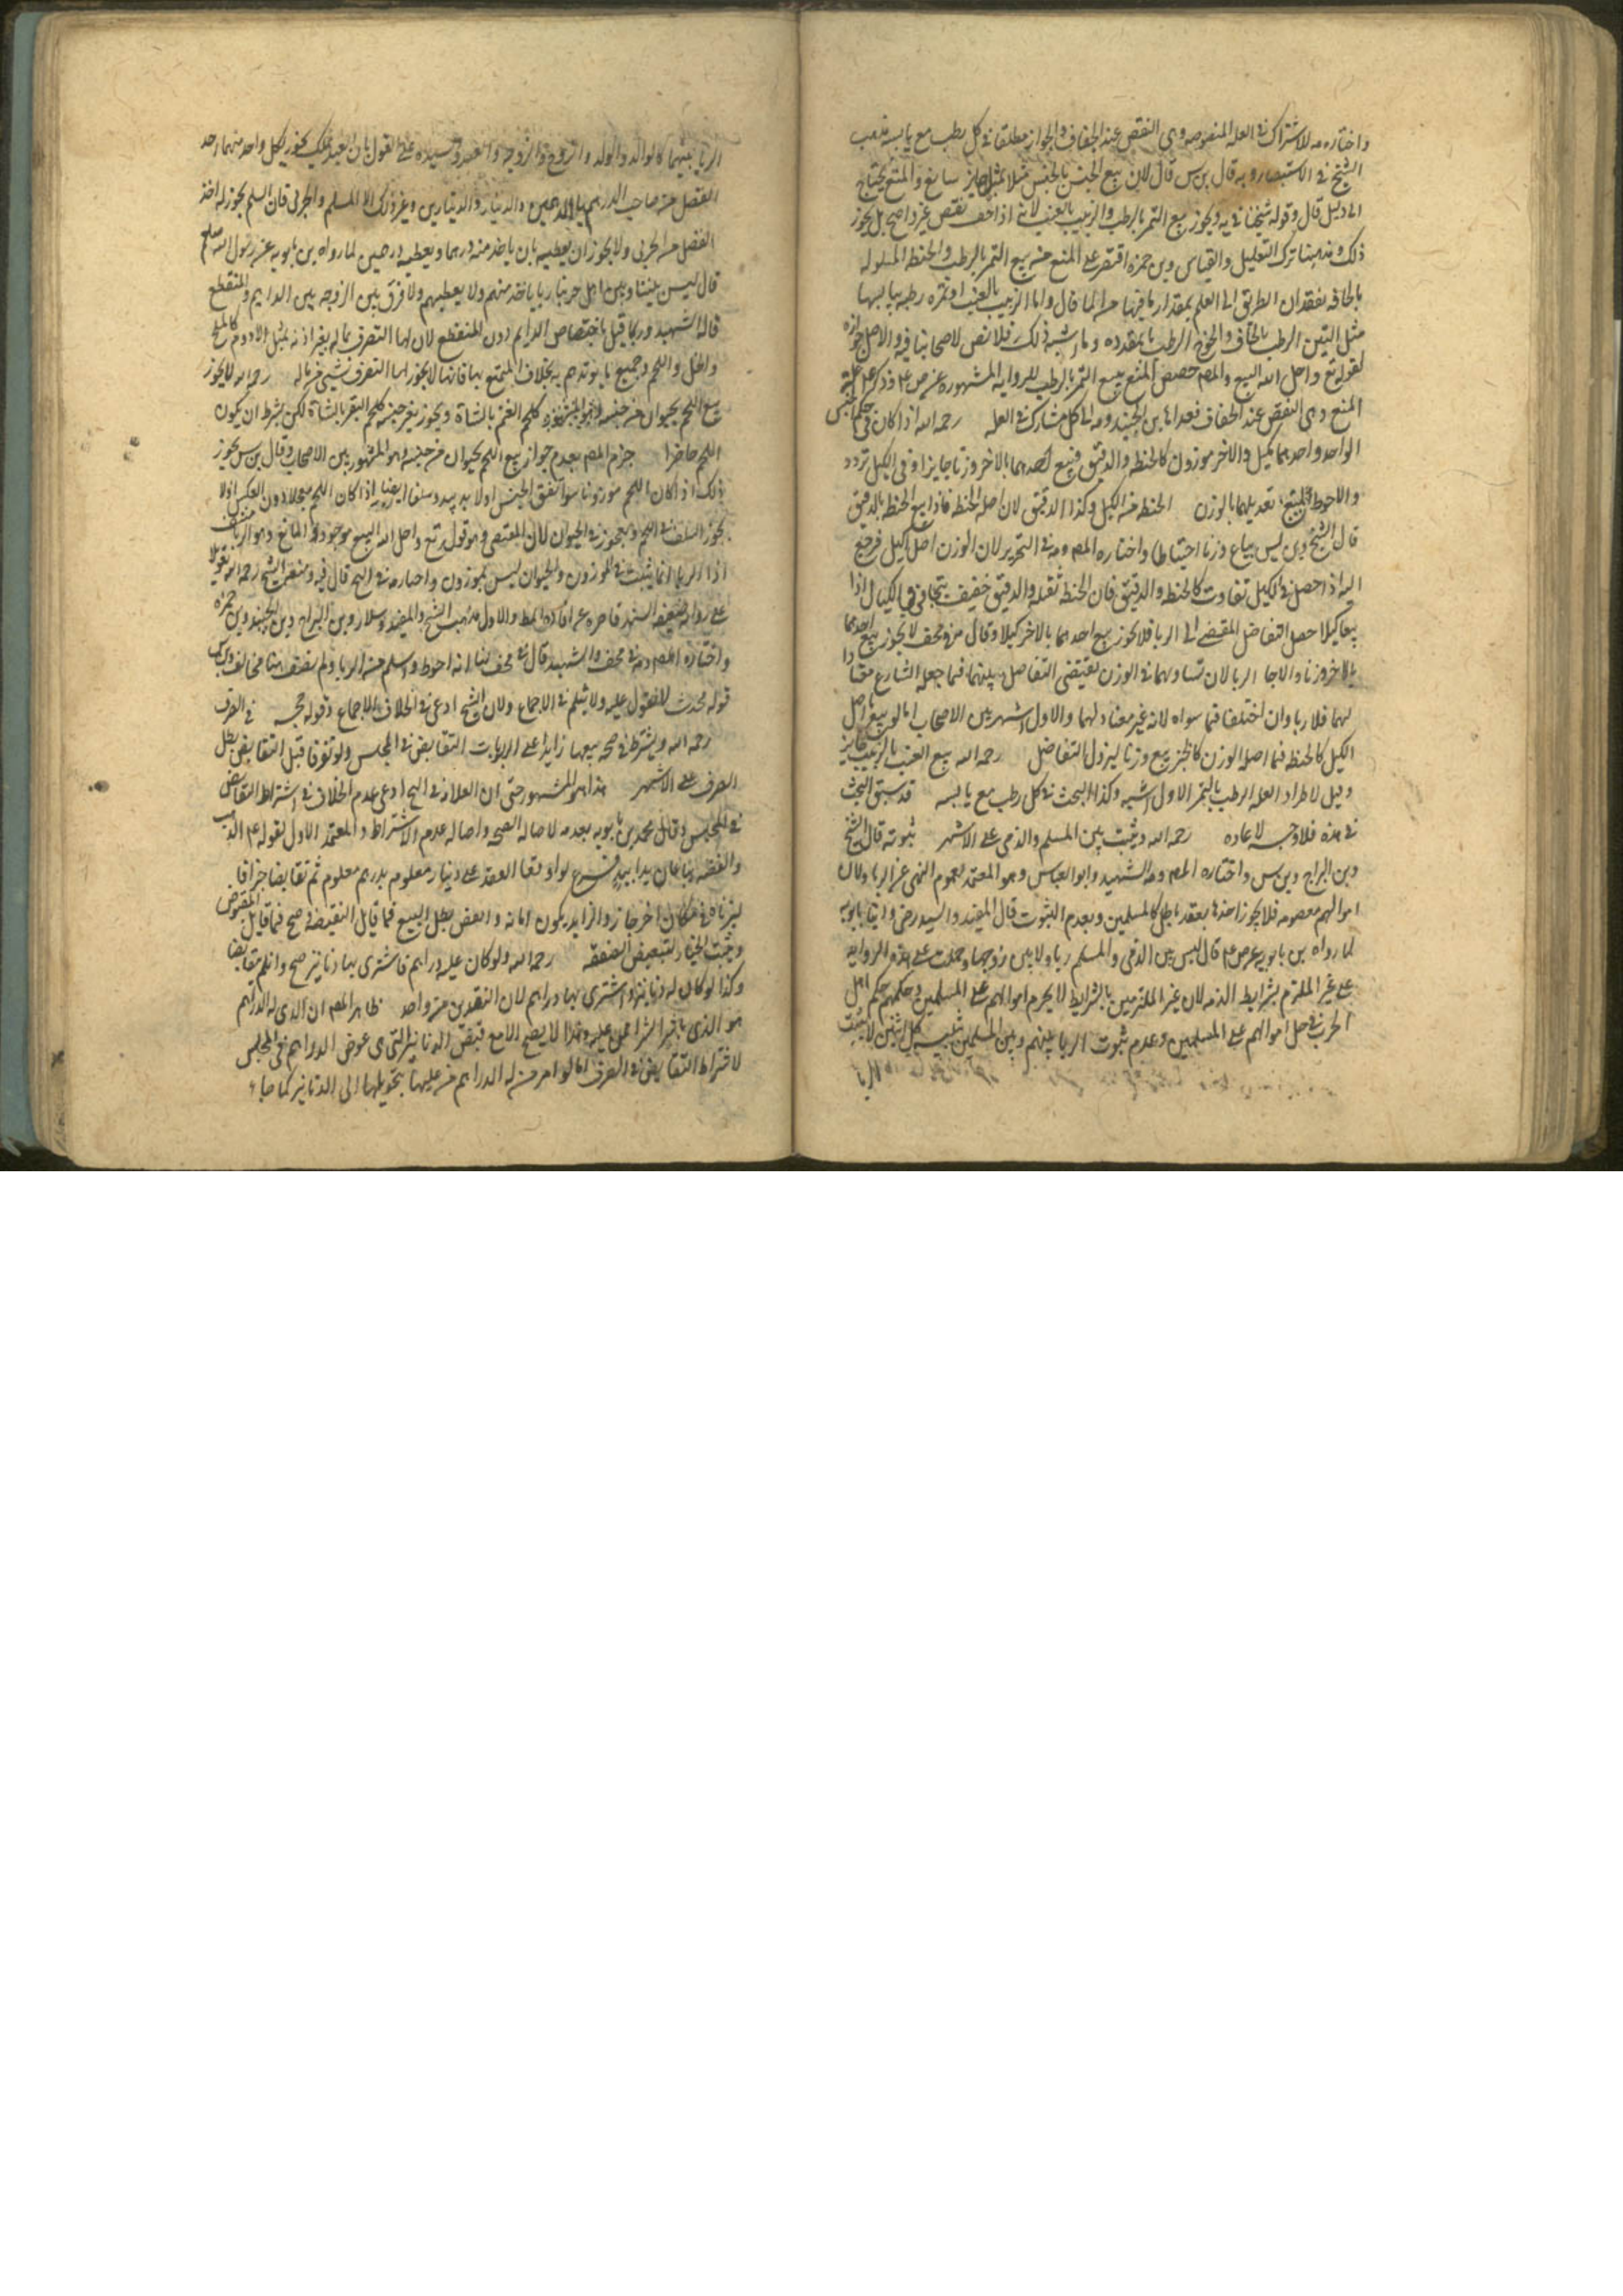 واختاره مه للاشتراك في العله المنصوصه وهي النقص عند الجفاف والجواز مطلقا في كل رطب مع يابسه مذهب
الشيخ في الاستبصار وبه قال بن س قال لان بيع الجنس بالجنس مثلا بمثل جايز سايغ والمنع يحتاج
الى دليل قال وقوله شيخنا في يه ويجوز بيع التمر بالرطب والزبيب بالعنب لانه اذا جف نقص غير واضح بل يجوز
ذلك ومذهبنا ترك التعليل والقياس وبن حمزه اقتصر على المنع من بيع التمر بالرطب والحنطه المبلوله
بالجافه لفقدان الطريق الى العلم بمقدار ما فيها من الما قال واما الزبيب بالعنب او تمره رطبه بيابسها
مثل التين الرطب بالجاف والخوخ الرطب بالمقدده وما اشبه ذلك فلا نص لاصحابنا فيه والاصل جوازه
لقوله تع واحل الله البيع والمص خصص المنع ببيع التمر بالرطب للروايه المشهوره عن ص ع وذكر ع علة
المنع وهي النقص عند الجفاف فعداها بن الجنيد ومه الى كل مشارك في العله رحمه الله اذا كان في حكم الجنس
الواحد واحدهما يكيل والاخر موزون كالحنطه والدقيق فبيع احدهما بالاخر وزنا جايز او في الكيل تردد
والاحوط المنع تعديلهما بالوزن الحنطه منه الكيل وكذا الدقيق لان اصله الحنطه فاذا بيع الحنطه بالدقيق
قال الشيخ وبن س يباع وزنا احتياطا واختاره المص ومه في التحرير لان الوزن اصل الكيل فرجع
اليه اذ حصل في الكيل تفاوت كالحنطه والدقيق فان الحنطه ثقيله والدقيق خفيف يتجافى في المكيال اذا
بيعا كيلا حصل التفاضل المقتضي الى الربا فلا يجوز بيع احدهما بالاخر كيلا وقال مه في مختلف لا يجوز بيع احدهما
بالاخر وزنا والا جا الربا لان تساويهما في الوزن يقتضي التفاضل بينهما فيما جعله الشارع مقدارا
لهما فلا ربا وان اختلفا فيما سواه لانه غير معتاد لهما والاول اشهر بين الاصحاب اما لو بيع ما اصل
الكيل كالحنطه فيما اصله الوزن كالخبز بيع وزنا ليزول التفاضل رحمه الله بيع العنب بالزبيب جايز
وقيل لا طراد العله الرطب بالتمر الاول اشبه وكذا البحث في كل رطب مع يابسه قد سبق البحث
في هذه فلا وجه لاعاده رحمه الله ويثبت بين المسلم والذمي على الاشهر ثبوته قال الشيخ
وبن البراج وبن س واختاره المص ومه والشهيد وابو العباس وهو المعتمد لعموم النهي عن الربا ولان
اموالهم معصومه فلا يجوز اخذها بعقد باطل كالمسلمين وبعدم الثبوت قال المفيد والسيد رضي وابنا بابويه
لما رواه بن بابويه عن ص ع قال ليس بين الذمي والمسلم ربا ولا بين زوجها وحملت على هذه الروايه
على غير الملتزم بشرايط الذمه لان غير الملتزمين بالشرايط لا يحرم اموالهم على المسلمين وحكمهم حكم اهل
الحرب في حل اموالهم على المسلمين وعدم ثبوت الربا بينهم وبين المسلمين تنبيه كل اثنين لا يثبت
الربا
الربا بينهما كالوالد والولد والزوج والزوجه والعبد وسيده على القول بان العبد يملك يجوز لكل واحد منهما اخذ
الفضل من صاحبه الدرهم بالدرهمين والدينار والدينارين وغير ذلك الا المسلم والحربي فان المسلم يجوز له اخذ
الفضل من الحربي ولا يجوز ان يعطيه بان ياخذ منه درهما ويعطيه درهمين لما رواه بن بابويه عن رسول الله صلعم
قال ليس بيننا وبين اهل حربنا ربا ياخذ منهم ولا يعطيهم ولا فرق بين الزوجه بين الدايم والمنقطع
قاله الشهيد وربما قيل باختصاص الدايم دون المنقطع لان لها التصرف بماله بغير اذنه بمثل الادوم كالملح
والخل واللحم وجميع ما يوتدم به بخلاف المتمتع بها فانها لا يجوز لها التصرف بشيء من ماله رحمه الله لا يجوز
بيع اللحم بحيوان من جنسه كلحم الغنم بالشاة ويجوز بغير جنسه كلحم البقر بالشاة لكن بشرط ان يكون
اللحم حاضرا جزم المص بعدم جواز بيع اللحم بحيوان من جنسه وهو المشهور بين الاصحاب وقال بن س يجوز
ذلك اذا كان اللحم موزونا سوا اتفق الجنس اولا يد بيد وسلفا ايضا اذا كان اللحم معجلا دون العكس اذ لا
يجوز السلف في اللحم ويجوز في الحيوان لان المقتضي وهو قوله تع واحل الله البيع موجود والمانع وهو الربا منتف
اذ الربا انما يثبت في الموزون والحيوان ليس بموزون واختاره في التح قال فيه ومنع الشيخ رحمه الله تعويلا
على روايه ضعيفه السند قاصره عن افاده المط والاول مذهب الشيخ والمفيد وسلار وبن البراج وبن الجنيد وبن حمزه
واختاره المص ومه في مختلف والشهيد قال في مختلف لنا انه احوط واسلم من الربا ولم نقف منا مخالف وبن س
قوله محدث لا نعول عليه ولا يثلم في الاجماع ولان الشيخ ادعى في الخلاف الاجماع وقوله حجه في الصرف
رحمه الله ويشترط في صحه بيعها زايدا على الربويات التقابض في المجلس ولو تفرقا قبل التقابض بطل
الصرف على الاشهر هذا هو المشهور حتى ان العلامة في التح ادعى عدم الخلاف في اشتراط التقابض
في المجلس وقال محمد بن بابويه بعدمه لاصاله الصحه واصاله عدم الاشتراط والمعتمد الاول لقوله ع الذهب
والفضه يباعان يدا بيد فرع لو اوقعا العقد على دينار معلومه بدرهم معلوم ثم تقابضا جزافا
ليزناه في مكان اخر جاز والزايد يكون امانه والبعض بطل البيع فيما قابل النقيضه وصح فيما قابل المقبوض
ويثبت الخيار لتبعيض الصفقه رحمه الله ولو كان عليه دراهم فاشترى بها دنانير صح وان لم يتقابضا
وكذا لو كان له دنانير واشترى بها دراهم لان النقدين من واحد ظاهر المص ان الذي له الدراهم
هو الذي باشر الشرا ممن عليه وهذا لا يصح الا مع قبض الدنانير التي هي عوض الدراهم في المجلس
لاشتراط التقابض في الصرف اما لو امر من له الدراهم من عليها بتحويلها الى الدنانير كما جاء